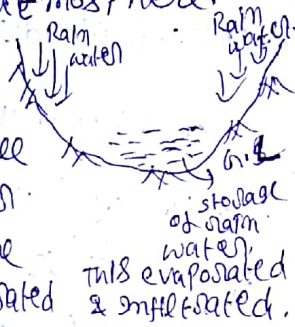 Rain
water
Rain
water.
G.L
storage
of rain
water.
This evaporated
& Infiltrated.